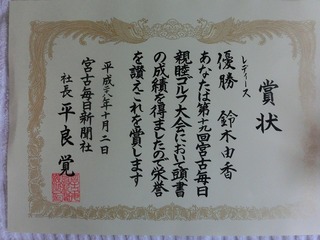 賞状
レディース
優勝 鈴木由香
あなたは第十九回宮古毎日
親睦ゴルフ大会において頭書
の成績を得ましたので栄誉
を讃えこれを賞します
平成二八年十月二日
宮古毎日新聞社
社長 平良覚